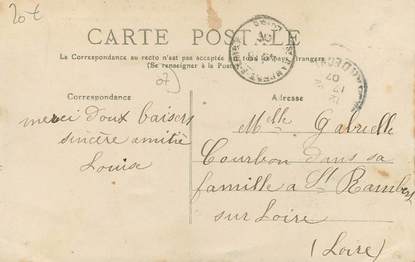 20€
CARTE POSTALE
La Correspondance au recto n'est pas acceptée par tous les pays étrangers
(Se renseigner à la Poste)
07
Correspondance
Adresse
merci doux baisers
sincère amitié
Louise
Melle Gabrielle
Courbon dans sa
famille a St Rambert
sur Loire
(Loire)